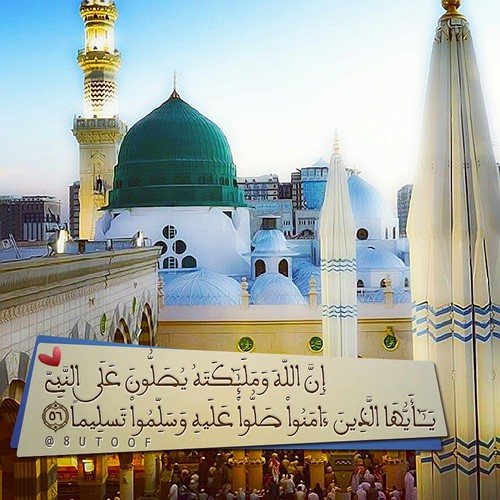 إِنَّ اللَّهَ وَمَلَٰٓئِكَتَهُۥ يُصَلُّونَ عَلَى النَّبِيِّ
يَٰٓأَيُّهَا الَّذِينَ ءَامَنُوا۟ صَلُّوا۟ عَلَيْهِ وَسَلِّمُوا۟ تَسْلِيمًا ٥٦
@8UTOOF